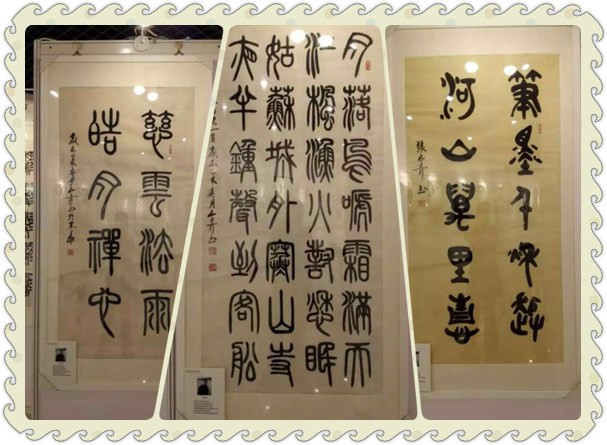 慈雲法雨
皓月禪心
月落烏啼霜滿天
江楓漁火對愁眠
姑蘇城外寒山寺
夜半鐘聲到客船
筆墨千秋
河山萬里